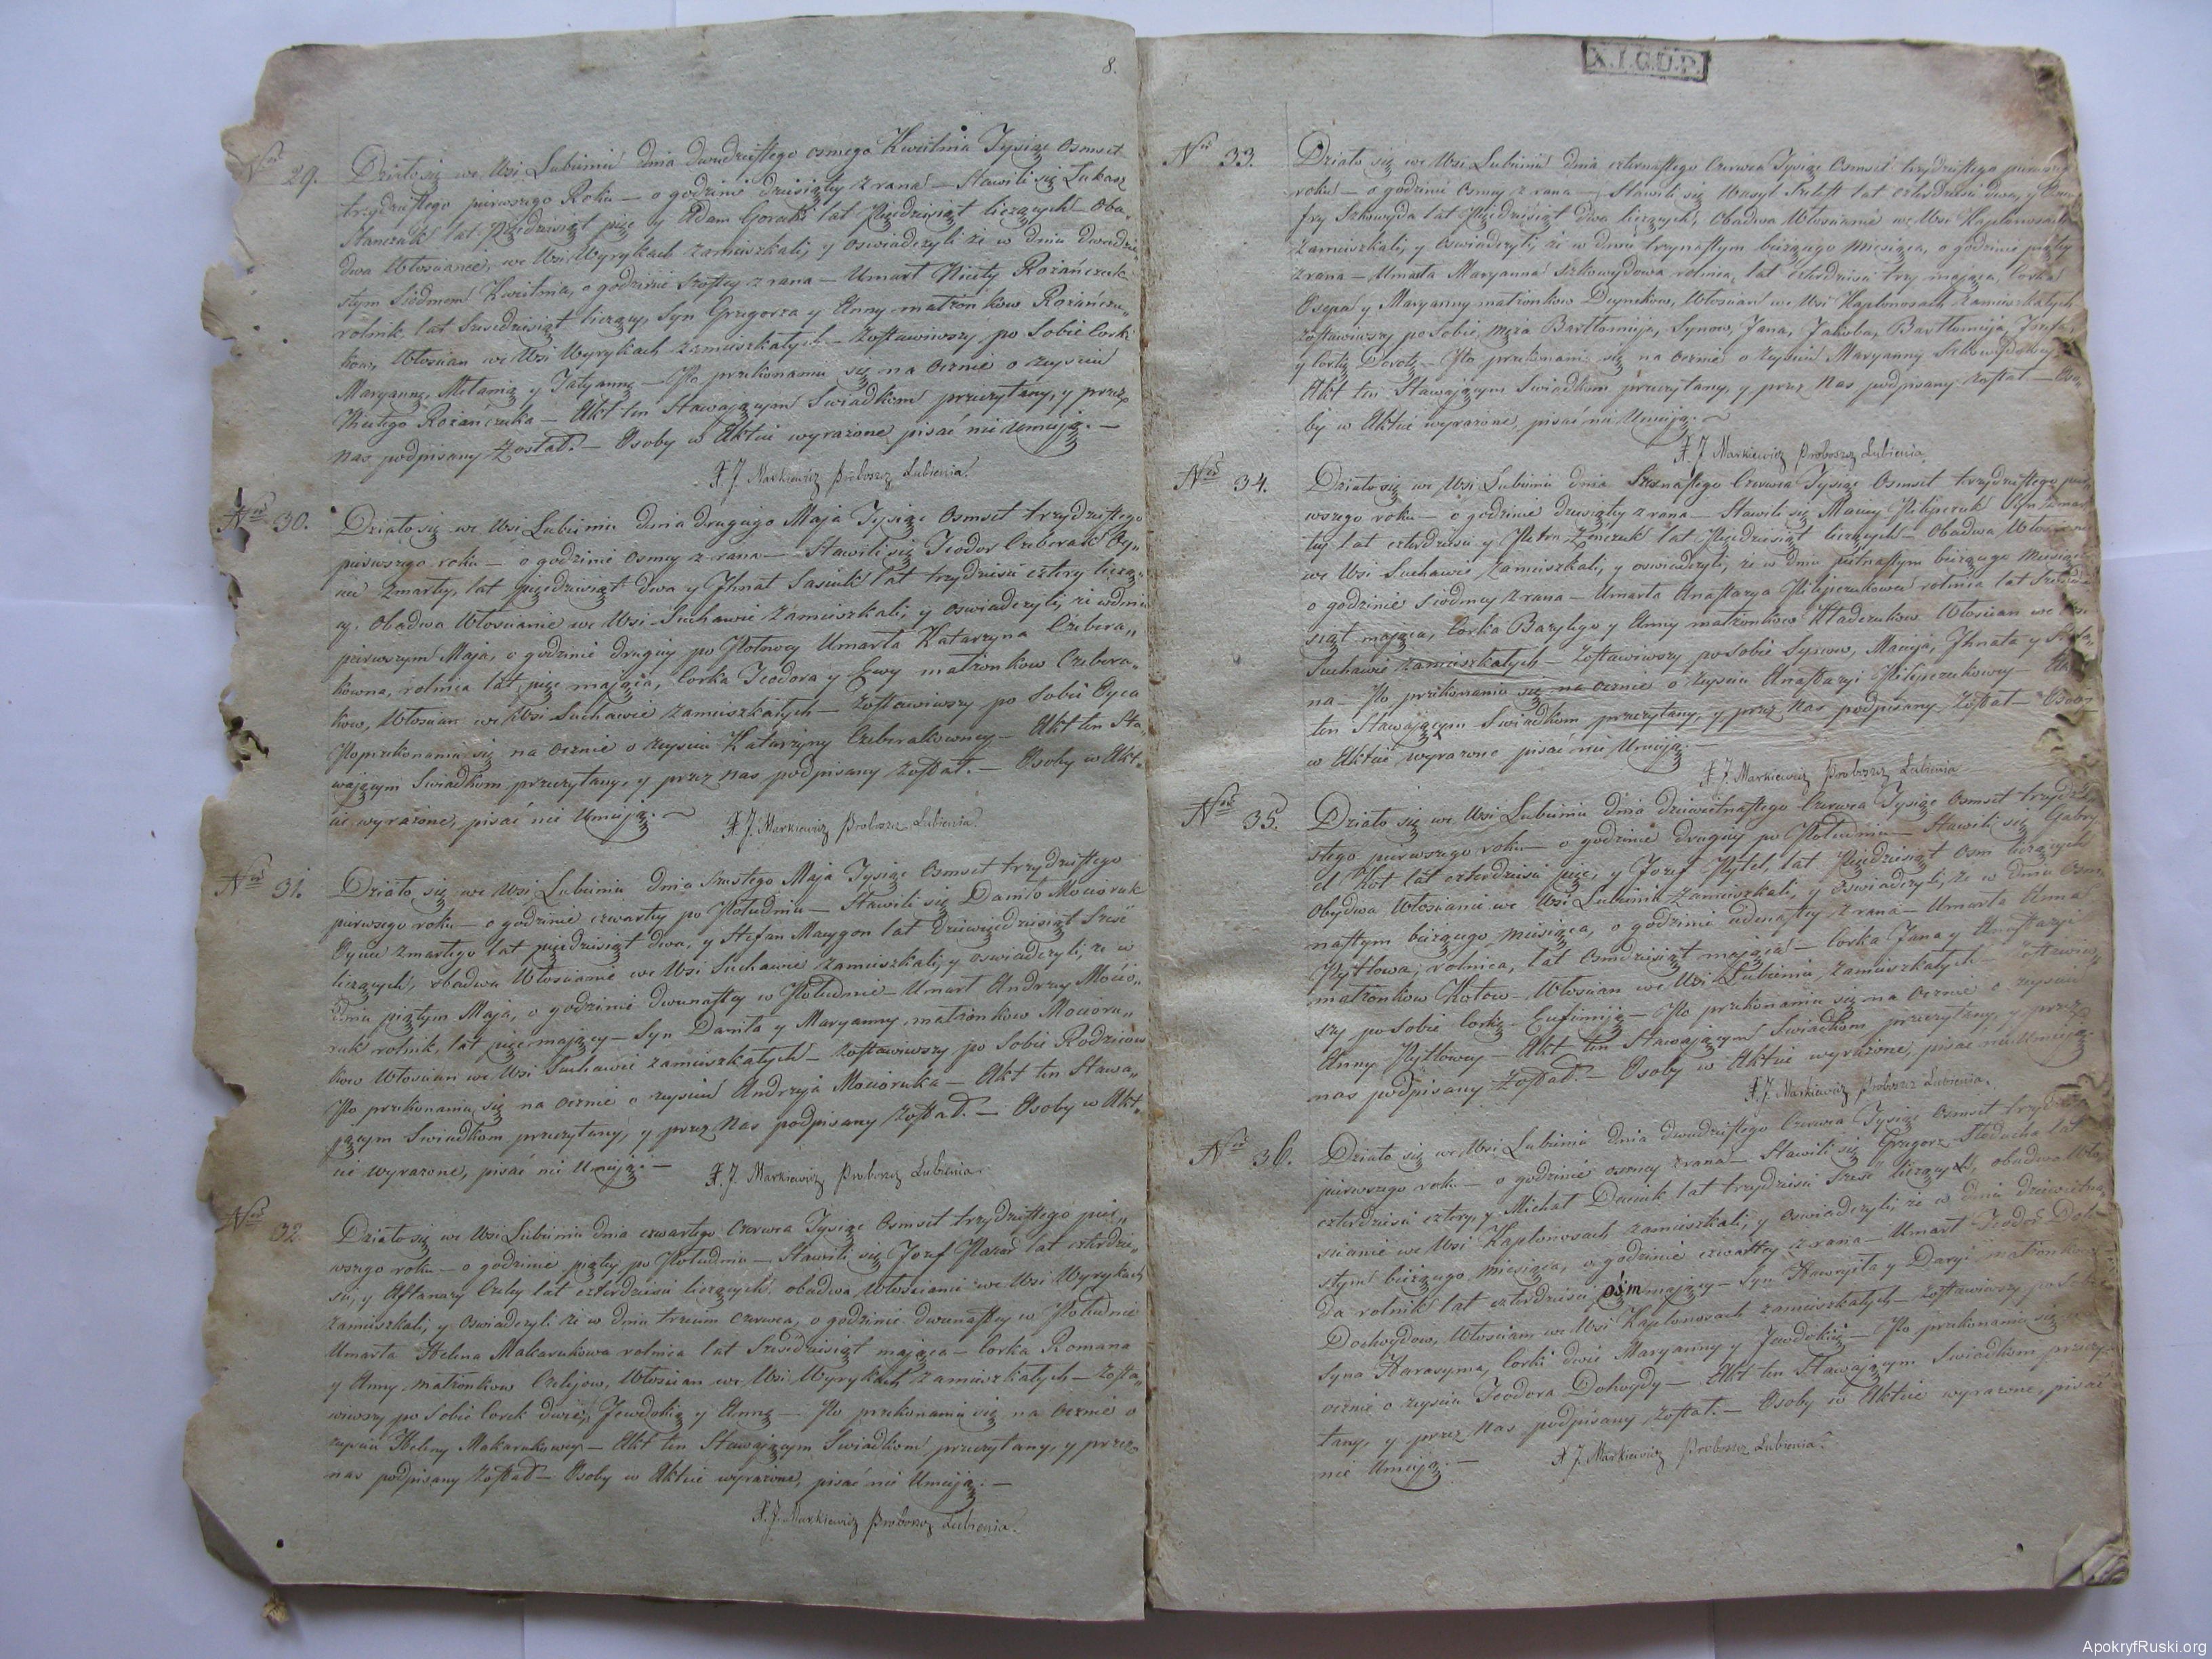 8.
Nro 29. Działo się we Wsi Lubieniu dnia dwudziestego osmego Kwietnia Tysiąc Osmset
trzydziestego pierwszego Roku — o godzinie dziesiąty z rana — Stawili się Łukasz
Stanczuk lat Pięcdziesiąt pięc y Adam Gorucki lat Pięcdziesiąt liczących — Oba„
dwa Włoscianie, we Wsi Wyrykach zamieszkali, y oswiadczyli że w dniu dwudzie„
stym Siodmem Kwietnia, o godzinie Szostey z rana — Umarł Nicety Rozańczuk
rolnik lat Szescdziesiąt liczący, Syn Grzegorza y Anny małzonków Rozańczu„
ków, Włoscian we Wsi Wyrykach zamieszkałych — Zostawiwszy po Sobie Corki
Maryannę, Melanię y Tatyannę — Po przekonaniu się na ocznie o zeysciu
Nicetego Rozańczuka — Akt ten Stawaiącym Swiadkom przeczytany, y przez
nas podpisany Został. — Osoby w Akcie wyrażone pisać nie umieją. —
X. J. Markiewicz Proboszcz Lubienia.
Nro 30. Działo się we Wsi Lubieniu dnia drugiego Maja Tysiąc Osmset trzydziestego
pierwszego roku — o godzinie osmey z rana — Stawili się Teodor Czeberak Oy„
ciec Zmarłey, lat pięcdziesiąt dwa y Ihnat Sasiuk lat trzydziesci cztery licząc„
cy. Obadwa Włoscianie we Wsi Suchawie Zamieszkali, y oswiadczyli, że wdniu
pierwszym Maja, o godzinie drugiey po Połnocy Umarła Katarzyna Czebera„
kowna, rolnica lat pięc mająca, Corka Teodora y Ewy małzonkow Czebera„
kow, Włoscian we Wsi Suchawie zamieszkałych — Zostawiwszy po Sobie Oyca
Poprzekonaniu się na ocznie o zeysciu Katarzyny Czeberakowney — Akt ten Sta„
waiącym Swiadkom przeczytany, y przez nas podpisany Został. — Osoby w Ak„
cie wyrażone, pisać nie Umieją. —
X. J. Markiewicz Proboszcz Lubienia.
Nro 31. Działo się we Wsi Lubieniu dnia Szustego Maja Tysiąc Osmset trzydziestego
pierwszego roku — o godzinie czwartey po Południu — Stawili się Daniło Mocioruk
Oyciec Zmarłego lat pięcdziesiąt dwa, y Stefan Maygon lat dziewięcdziesiąt Szesć
liczących, obadwa Włoscianie we Wsi Suchawie zamieszkali, y oswiadczyli, że w
dniu piątym Maja, o godzinie dwunastey w Południe — Umarł Andrzey Mocio„
ruk rolnik, lat pięc mający — Syn Daniła y Maryanny, małzonkow Mocioru„
kow Włoscian we Wsi Suchawie zamieszkałych — Zostawiwszy po Sobie Rodziców
Po przekonaniu się na ocznie o zeysciu Andrzeja Mocioruka — Akt ten Stawa„
jącym Swiadkom przeczytany, y przez Nas podpisany Został. — Osoby w Ak„
cie wyrażone, pisać nie Umieją. —
X. J. Markiewicz Proboszcz Lubienia.
Nro 32 Działo się we Wsi Lubieniu dnia czwartego Czerwca Tysiąc Osmset trzydziestego pier„
wszego roku — o godzinie piątey po Południu — Stawili się Jozef Nazar lat czterdzie„
sci, y Aftanazy Czeley lat czterdziesci liczących, obadwa Włoscianie we Wsi Wyrykach
zamieszkali, y oswiadczyli że w dniu trzecim Czerwca, o godzinie dwunastey w Południe
Umarła Helena Makarukowa rolnica lat Szescdziesiąt mająca — Corka Romana
y Anny małzonkow Czelejow, Włoscian we Wsi Wyrykach zamieszkałych — Zosta„
wiwszy po Sobie Corek dwie, Jewdokię y Annę — Po przekonaniu się na ocznie o
zeysciu Heleny Makarukowey — Akt ten Stawającym Swiadkom przeczytany, y przez
nas podpisany Został — Osoby w Akcie wyrażone, pisać nie Umieją. —
X. J. Markiewicz Proboszcz Lubienia.
X.I.G.U.P.
Nro 33. Działo się we Wsi Lubieniu dnia czternastego Czerwca Tysiąc Osmset trzydziestego pierwszego
roku — o godzinie Osmey z rana — Stawili się Wasyl lat czterdziesci dwa, y
fry Szkowyda lat Pięcdziesiąt dwa liczących, Obadwa Włoscianie we Wsi Kaplonosach
zamieszkali, y Oswiadczyli, że w dniu trzynastym bieżącego miesiąca, o godzinie piątey
z rana — Umarła Maryanna Szkowydowa rolnica, lat czterdziesci trzy mająca, Corka
Osepa y Maryanny małzonkow Deynekow, Włoscian we Wsi Kaplonosach zamieszkałych
Zostawiwszy po Sobie, męża Bartłomieja, Synow, Jana, Jakoba, Bartłomieja, Jozefa
y Corkę Dorotę — Po przekonaniu się na ocznie o zeysciu Maryanny Szkowydowey
Akt ten Stawającym Swiadkom przeczytany, y przez Nas podpisany Został — Oso
by w Akcie wyrażone, pisać nie Umieją. —
X. J. Markiewicz Proboszcz Lubienia
Nro 34. Działo się we Wsi Lubieniu dnia Szesnastego Czerwca Tysiąc Osmset trzydziestego pier
wszego roku — o godzinie dziesiątey z rana — Stawili się Maciey Pilipczuk Syn Zmar
łey lat czterdziesci y Petro Zinczuk lat Pięcdziesiąt liczących — Obadwa Włoscianie
we Wsi Suchawie Zamieszkali, y oswiadczyli, że w dniu piętnastym bieżącego miesiąca
o godzinie Siodmey z rana — Umarła Anastazya Pilipczukowa rolnica lat Szescdzie
siąt mająca, Corka Bazylego y Anny małzonkow Kładczukow Włoscian we Wsi
Suchawie zamieszkałych — Zostawiwszy po Sobie Synow, Macieja, Ihnata y
na — Po przekonaniu się na ocznie o zeysciu Anastazyi Pilipczukowey — Akt
ten Stawającym Swiadkom przeczytany, y przez Nas podpisany Został — Osoby
w Akcie wyrażone pisać nie Umieją. —
X. J. Markiewicz Proboszcz Lubienia
Nro 35. Działo się we Wsi Lubieniu dnia dziewiętnastego Czerwca Tysiąc Osmset trzydzie
stego pierwszego roku — o godzinie drugiey po Południu — Stawili się Gabry
el Kot lat czterdziesci pięc, y Jozef Pytel, lat Pięcdziesiąt Osm liczących
Obydwa Włoscianie we Wsi Lubieniu Zamieszkali, y Oswiadczyli, że w dniu Osm
nastym bieżącego miesiąca, o godzinie iedenastey z rana — Umarła Anna
Pytlowa, rolnica, lat Osmdziesiąt mająca — Corka Jana y Anastazyi
małzonkow Kotow — Włoscian we Wsi Lubieniu, Zamieszkałych — Zostawiw„
szy po Sobie Corkę Eufimię — Po przekonaniu się na ocznie o zeysciu
Anny Pytlowey — Akt ten Stawającym Swiadkom przeczytany, y przez
nas podpisany Został. — Osoby w Akcie wyrażone, pisać nie Umieją.
X. J. Markiewicz Proboszcz Lubienia.
Nro 36. Działo się we Wsi Lubieniu dnia dwudziestego Czerwca Tysiąc Osmset trzydzie
pierwszego roku — o godzinie osmey z rana — Stawili się Grzegorz Hoducha lat
czterdziesci cztery, y Michał Daciuk lat trzydziesci Szesć liczących, obadwa Wło
scianie we Wsi Kaplonosach zamieszkali, y Oswiadczyli, że w dniu dziewiętna
stym bieżącego miesiąca, o godzinie czwartey z rana — Umarł Teodor Doho
da rolnik lat czterdziesci ośm mający — Syn Hawryiła y Daryi małzonkow
Dohoydow, Włoscian we Wsi Kaplonosach zamieszkałych — Zostawiwszy po Sobie
Syna Harasyma, Corki dwie Maryannę y Jewdokię — Po przekonaniu się na
ocznie o zeysciu Teodora Dohoydy — Akt ten Stawającym Swiadkom przeczy
tany, y przez Nas podpisany Został. — Osoby w Akcie wyrażone, pisać
nie Umieją. —
X. J. Markiewicz Proboszcz Lubienia.
ApokryfRuski.org